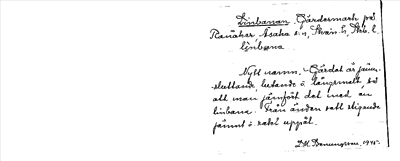 Linbanan, Gärdesmark på
Ranåker, Asaka s:n,
linbana
Nytt namn. Gärdet är jämn
sluttande, lutande o. långsmalt, så
att man jämfört det med en
linbana. Från änden sett stigande
jämnt o. rakt uppåt.
1945.